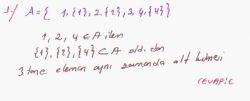 1-) A = { 1, {1}, 2, {2}, 2, 4, {4} }
1, 2, 4 ∈ A iken
{1}, {2}, {4} ⊂ A old. dan
3 tane eleman aynı zamanda alt kümesi
CEVAP: C